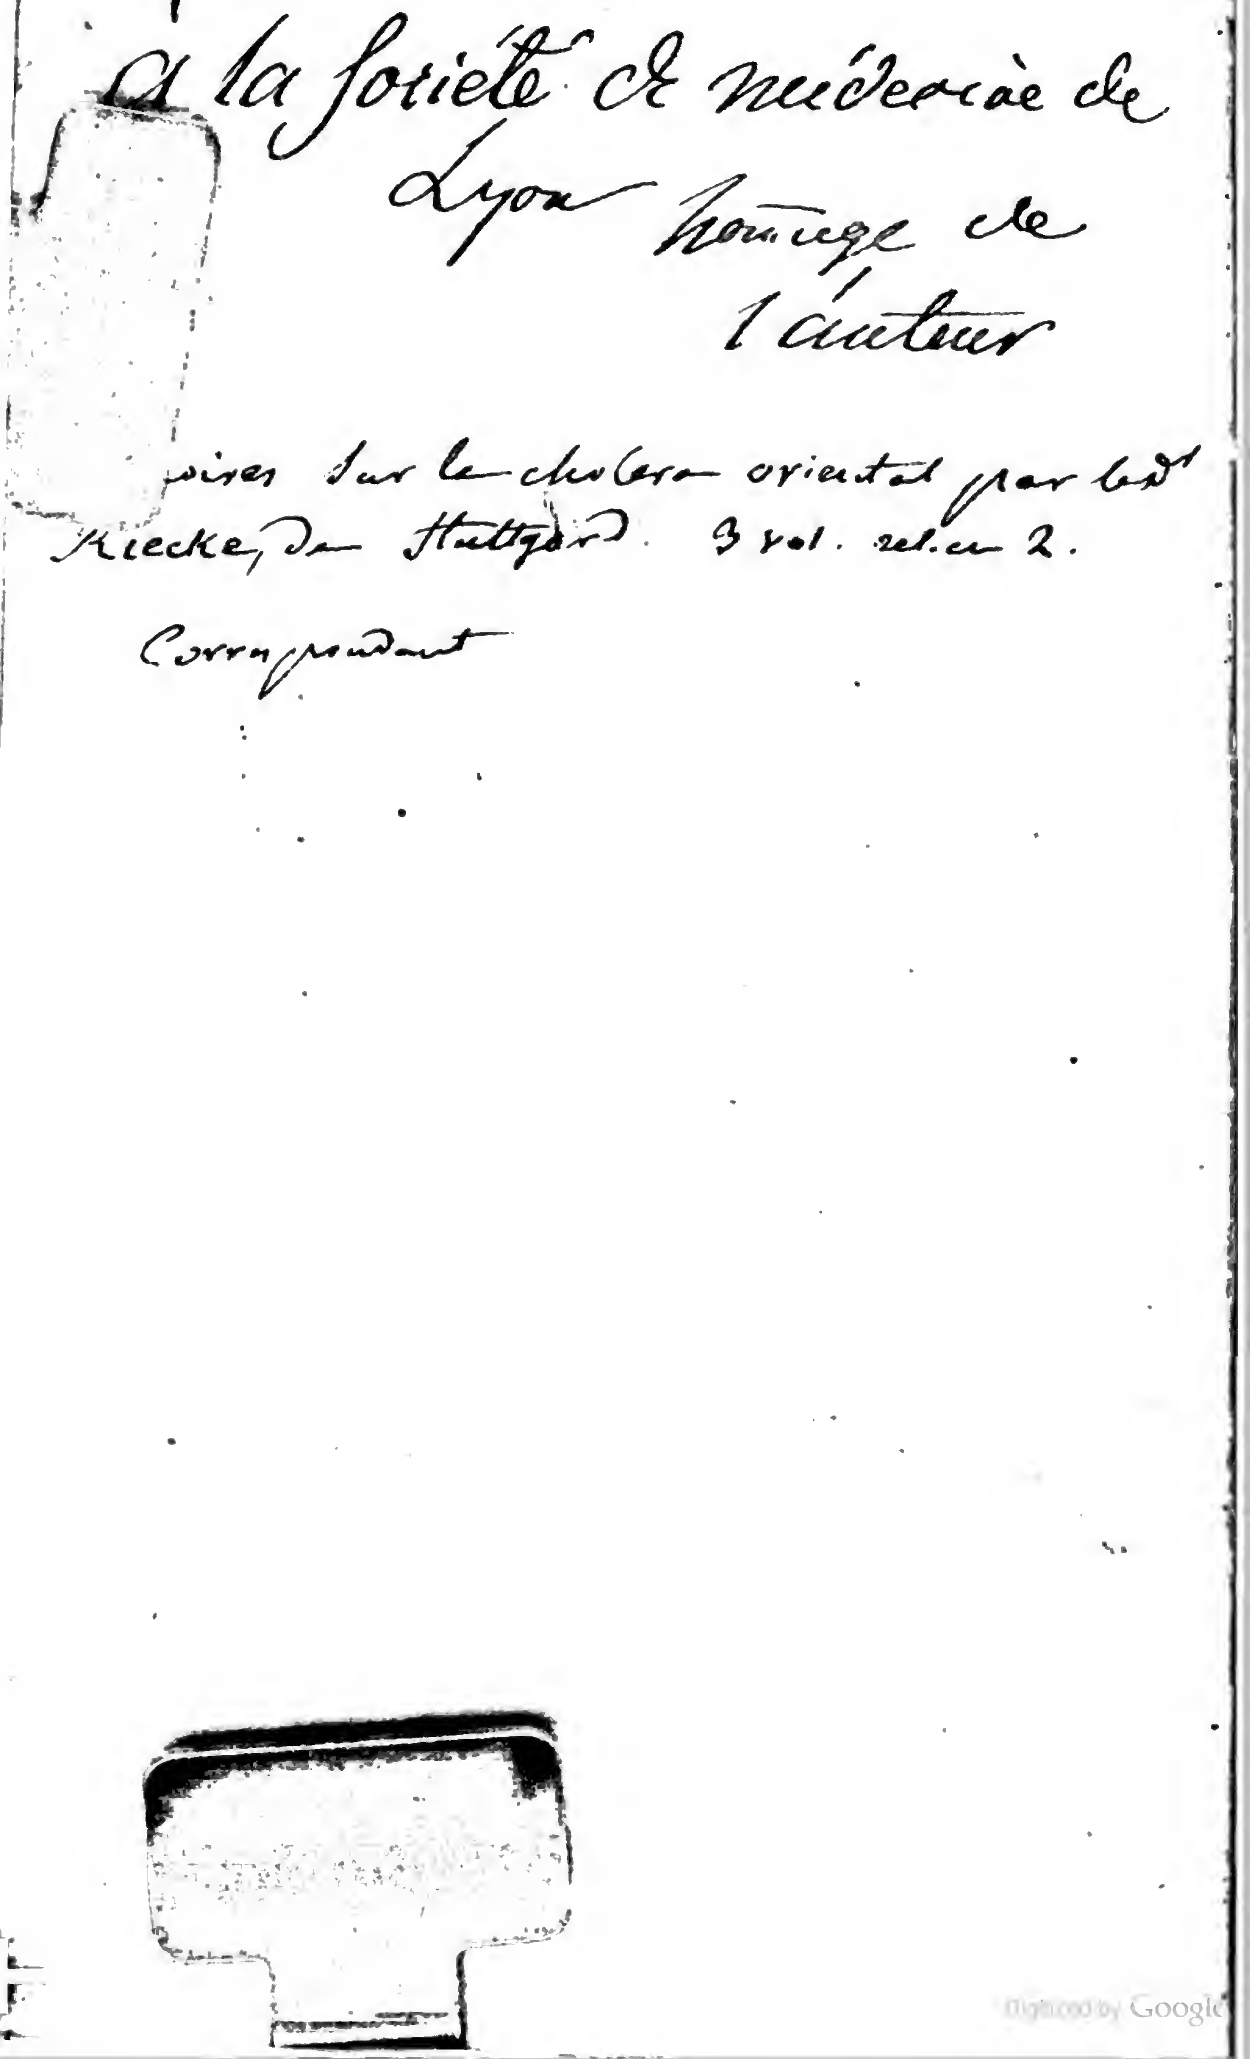 à la societé de médecine de
Lyon homage de
l'auteur
oires sur le cholera oriental par le dr
Riecke, de Stuttgard. 3 vol. rel. en 2.
Correspondant
Digitized by Google